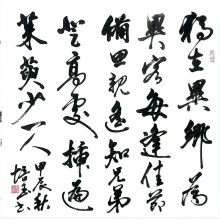 独在異鄉為
異客每逢佳節
倍思親遙知兄弟
登高處插遍
茱萸少一人
甲辰秋
培
书